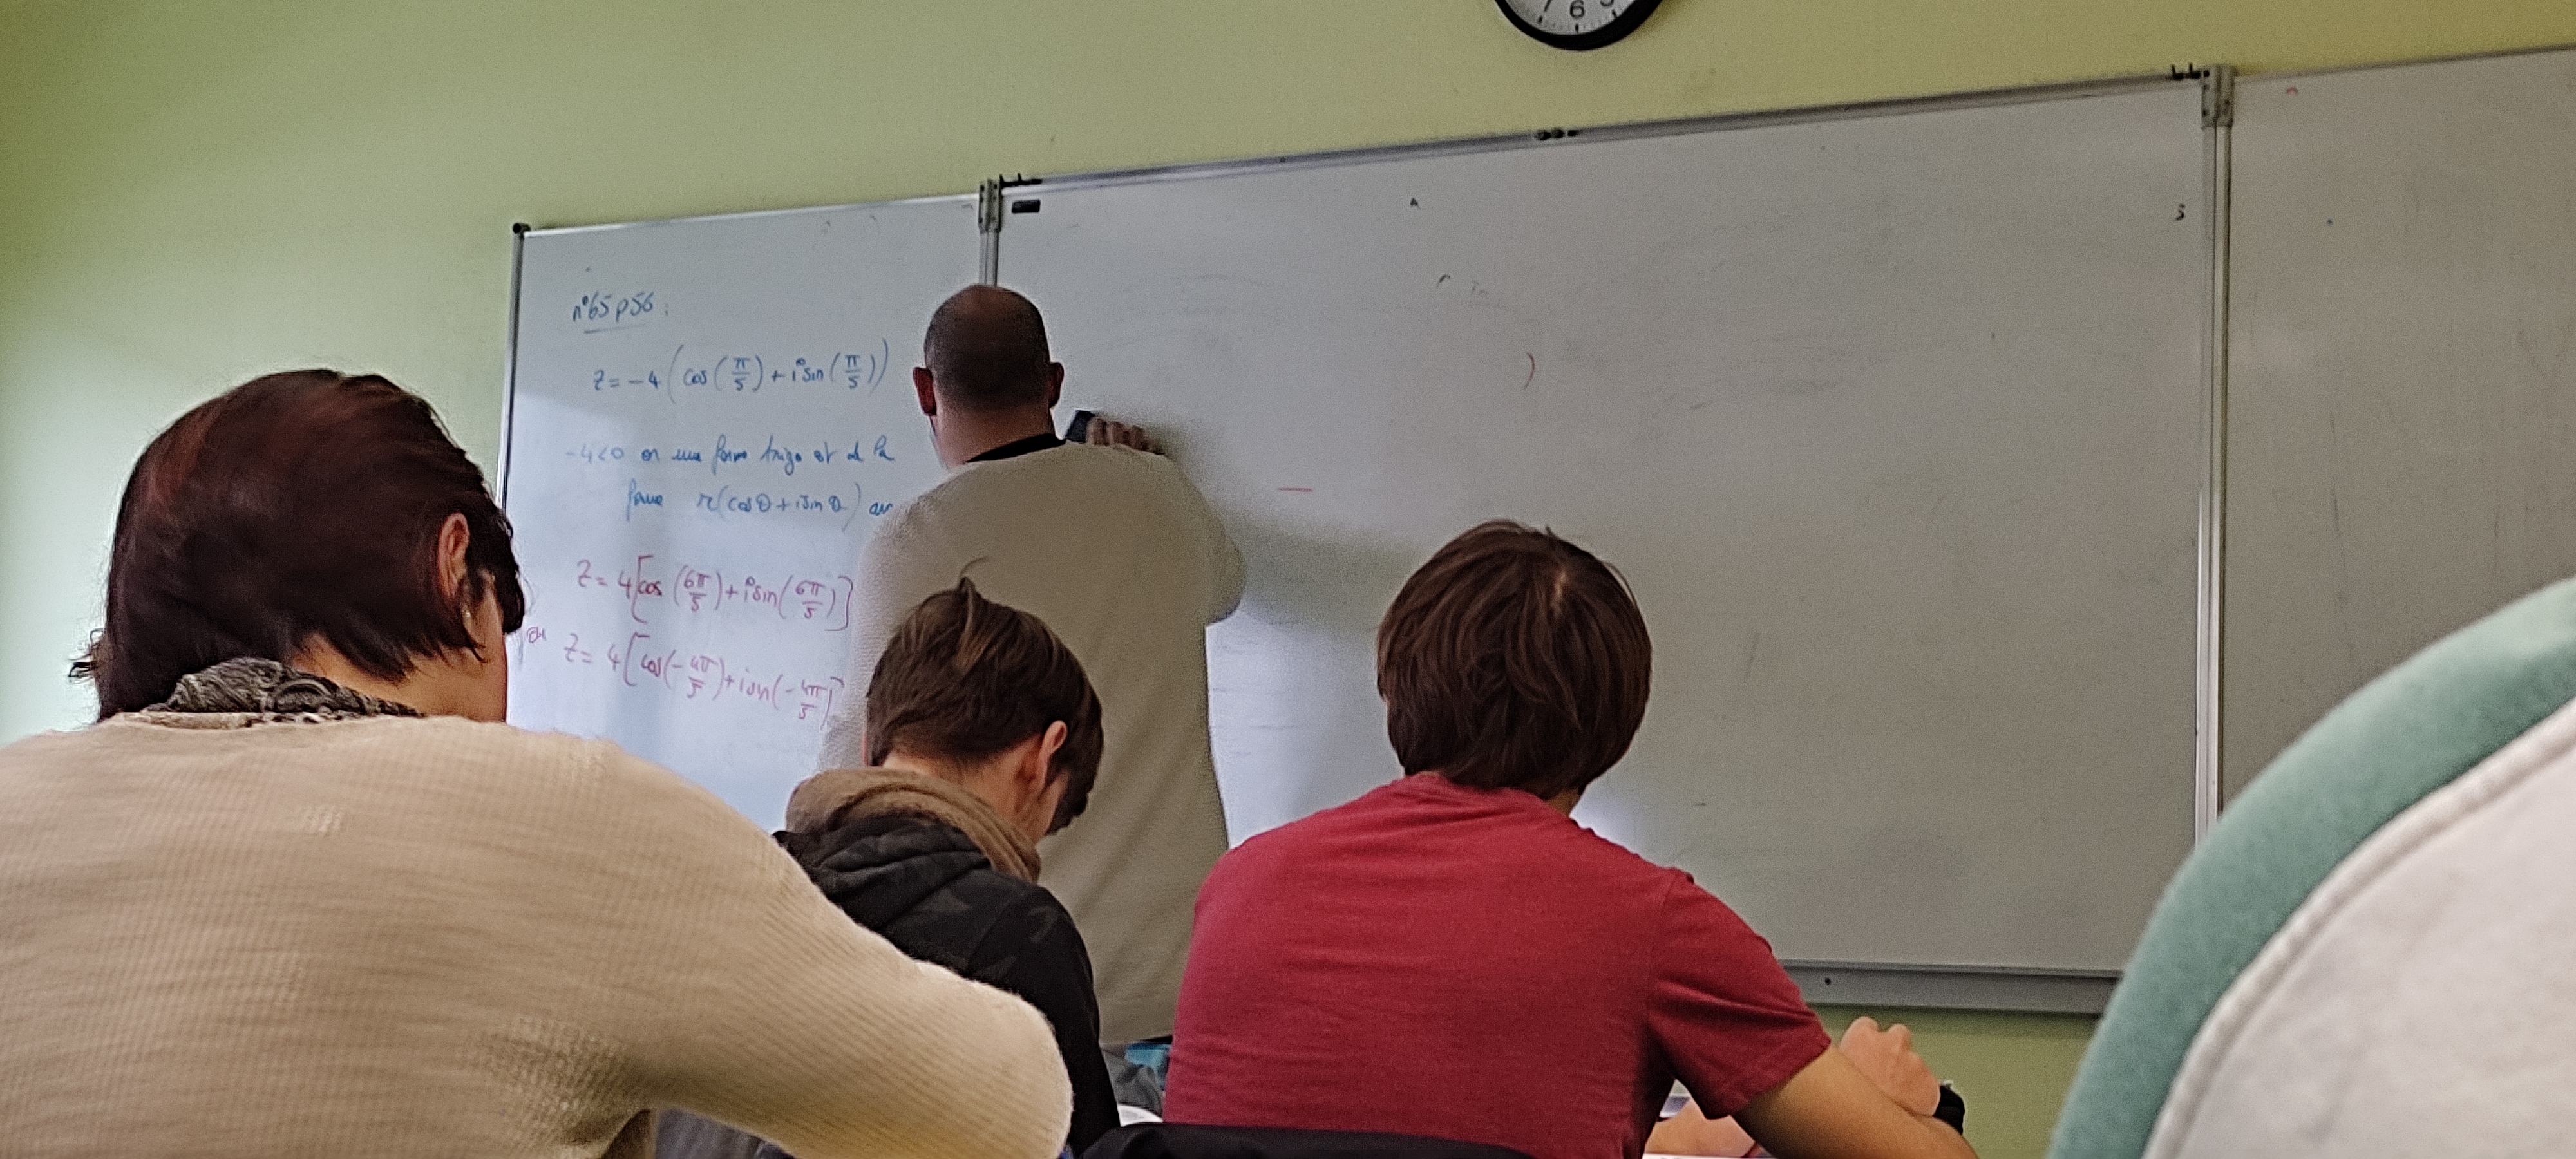 n°65 p56 :
z = -4 ( cos ( π/5 ) + i sin ( π/5 ) )
-4<0 or une forme trigo est de la
forme r(cos θ + i sin θ)
z = 4 [cos ( 6π/5 ) + i sin ( 6π/5 )]
ou z = 4 [cos(- 4π/5 ) + i sin(- 4π/5 )]
6